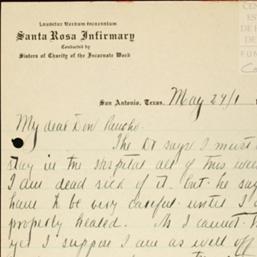 Laudetur Verbum Incarnatum
Santa Rosa Infirmary
Conducted by
Sisters of Charity of the Incarnate Word
San Antonio, Texas, May 24/1
My dear Don Pancho.
The Dr says I must
stay in the hospital all of this wee
I am dead sick of it. but he say
have to be very careful until I
properly healed. As I cannot
yet I suppose I am as well off
CEN
ES
DE
DE
FUN
C